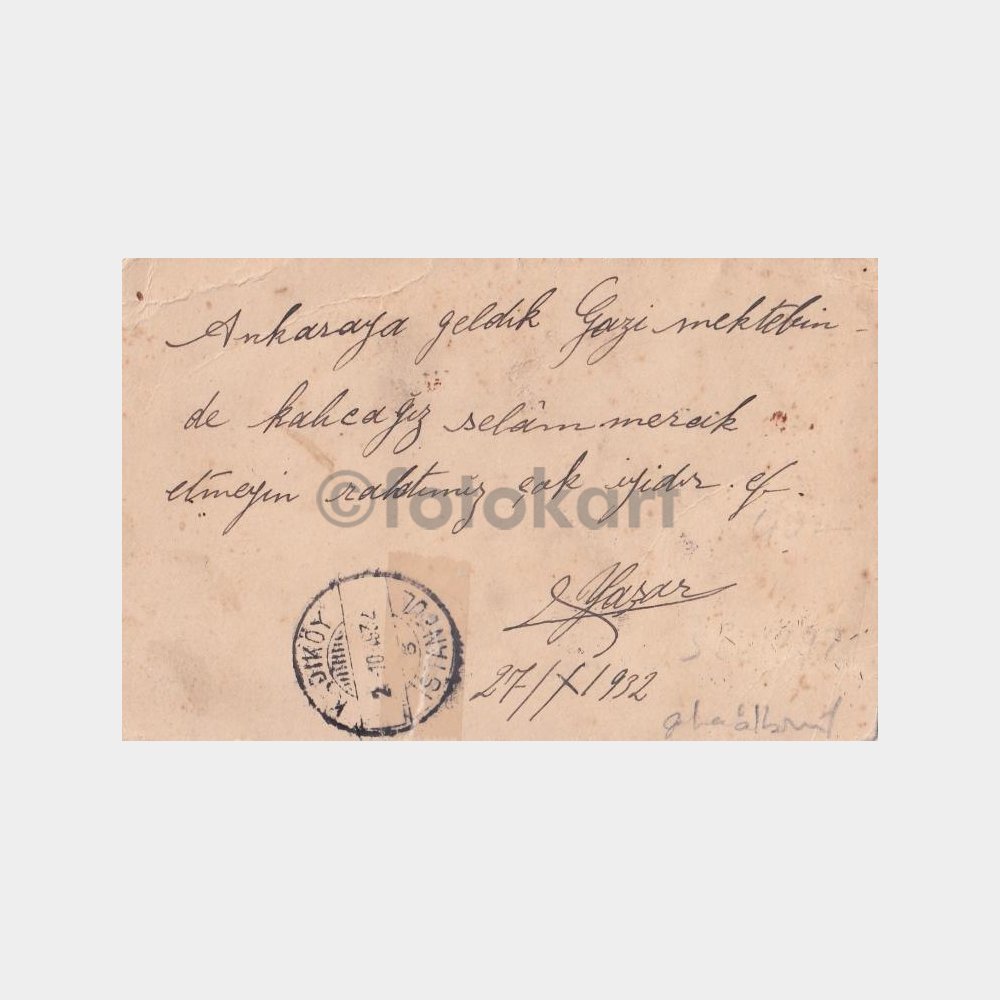 Ankaraya geldik Gazi mektebin -
de kalıcağız selâm merak
etmeyin rahtımız çok iyidir. ef.
©fotokart
Yaşar
27/X/1932
KADIKÖY
İSTANBUL
2 -10 1932